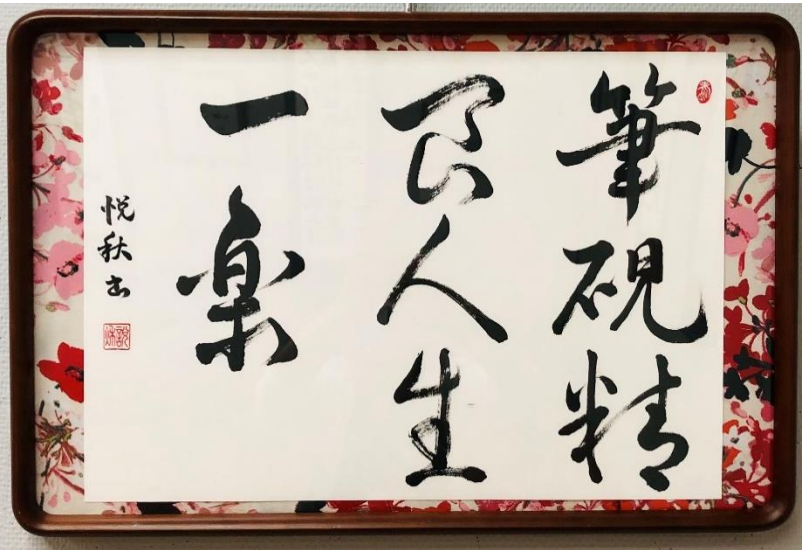 筆硯精
良人生
一楽
悦秋書